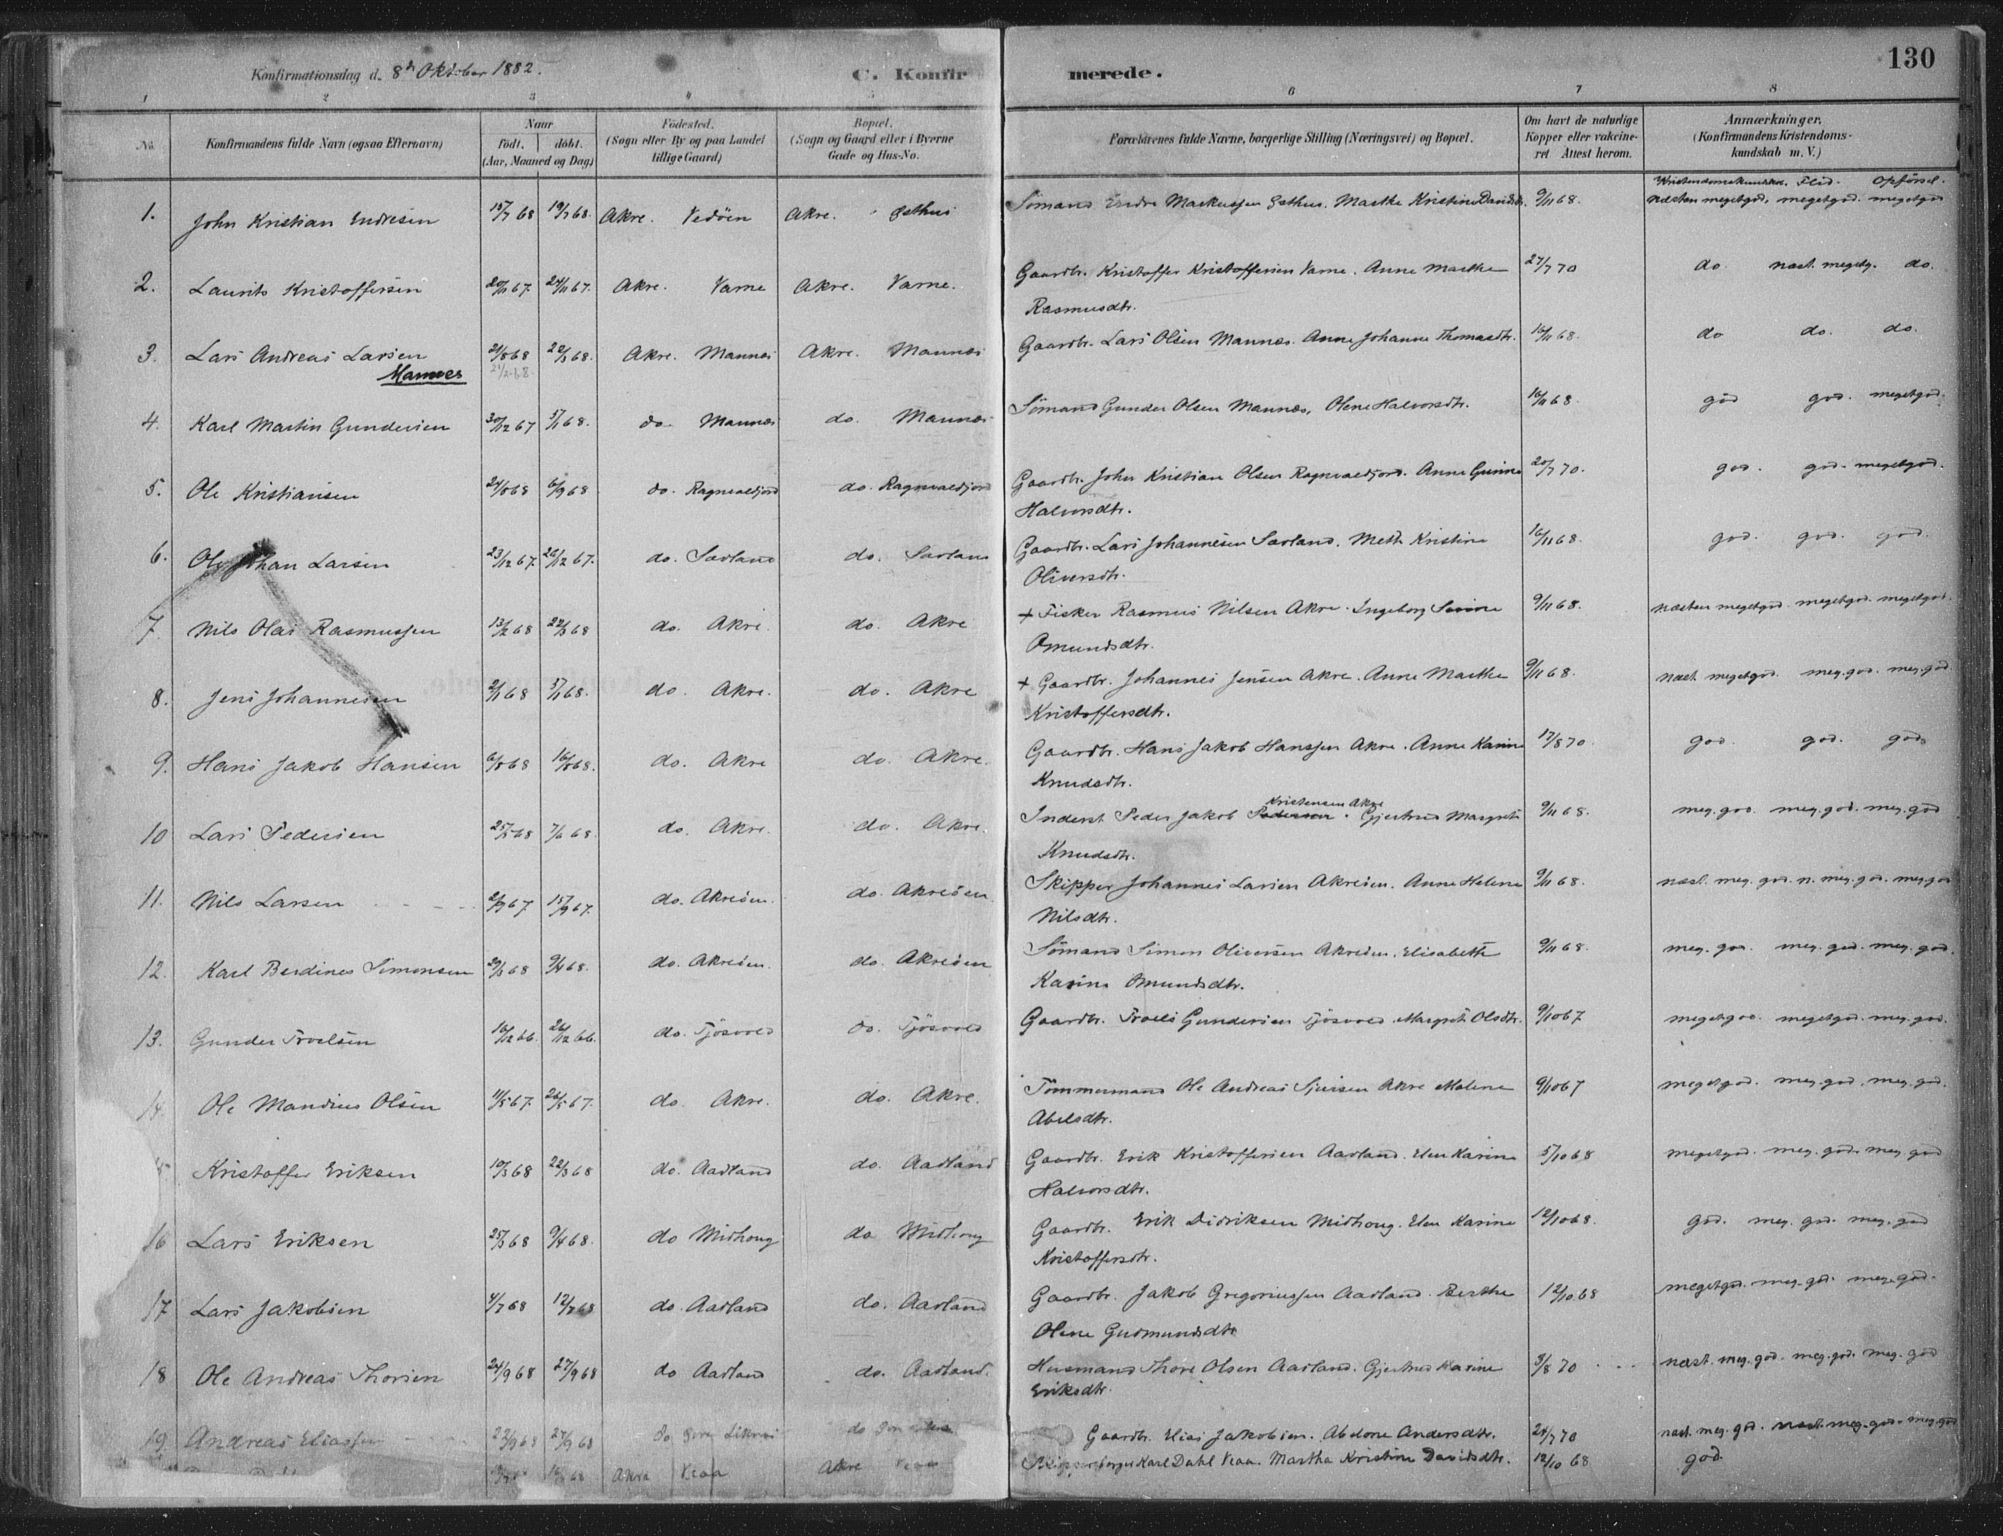 130
Konfirmationsdag d. 8de Oktober 1882.
C. Konfirmerede.
1 2 3 4 5 6 7 8
No.
Konfirmandens fulde Navn (ogsaa Efternavn)
Naar
født. døbt.
(Aar, Maaned og Dag)
Fødested.
(Sogn eller By og paa Landet
tillige Gaard)
Bopæl.
(Sogn og Gaard eller i Byerne
Gade og Hus-No.
Forældrenes fulde Navne, borgerlige Stilling (Næringsvei) og Bopæl.
Om havt de naturlige
Kopper eller vakcine-
ret Attest herom.
Anmærkninger.
(Konfirmandens Kristendoms-
kundskab m. V.)
Kristendomskundsk. Flid. Opførsel.
1. John Kristian Endresen 15/7 68 19/7 68. Akre. Vedøen Akre. Østhus Sømand Endre Markussen Østhus. Marthe Kristine Davidsdtr. 9/11 68. næsten megetgod, megetgod. megetgod
2. Laurits Kristoffersen 20/11 67. 24/11 67. Akre. Varne Akre. Varne. Gaardbr. Kristoffer Kristoffersen Varne. Anne Marthe 27/7 70 do. næst. megetg. do.
Rasmusdtr.
3. Lars Andreas Larsen 21/8 68 22/3 68. Akre. Mannes Akre. Mannes Gaardbr. Lars Olsen Mannes. Anne Johanne Thomasdtr. 16/11 68. do do. do.
Mannes 21/2 68.
4. Karl Martin Gundersen 30/12 67 5/1 68. do. Mannes do. Mannes Sømand Gunder Olsen Mannes, Olene Halvorsdtr. 16/11 68. god god. megetgod.
5. Ole Kristiansen 24/8 68 6/9 68 do. Ragnvaldjord do. Ragnvaldjord Gaardbr. John Kristian Olsen Ragnvaldjord. Anne Gurine 20/7 70. god. god. megetgod.
Halvorsdtr.
6. Ole Johan Larsen 23/12 67. 26/12 67. do. Sævland do. Sævland Gaardbr. Lars Johannesen Sævland. Mette Kristine 16/11 68. god. god. god.
Oliversdtr.
7. Nils Olai Rasmussen 13/2 68 22/3 68 do. Akre. do. Akre + Fisker Rasmus Nilsen Akre. Ingeborg Serine 9/11 68. næsten megetgod. megetgod. megetgod.
Omundsdtr.
8. Jens Johannesen 2/1 68 5/1 68. do. Akre. do. Akre + Gaardbr. Johannes Jensen Akre. Anne Marthe 9/11 68. næst. megetgod. meg. god. meg. god.
Kristoffersdtr.
9. Hans Jakob Hansen 6/8 68 16/8 68. do. Akre do. Akre. Gaardbr. Hans Jakob Hanssen Akre. Anne Karine 17/8 70. god. god. god.
Knudsdtr.
Kristensen Akre
10 Lars Pedersen 25/5 68 7/6 68 do. Akre. do. Akre. Inderst Peder Jakob Pedersen. Gjertrud Margrete 9/11 68. meg. god. meg. god. meg. god
Knudsdtr.
11. Nils Larsen 2/9 67 15/9 67. do. Akreøen. do. Akreøen Skipper Johannes Larsen Akreøen. Anne Helene 9/11 68. næst. meg. god. n. meg. god. meg. god
Nilsdtr.
12. Karl Berdines Simonsen 29/3 68 9/4 68. do. Akreøen. do. Akreøen Sømand Simon Oliversen Akreøen. Elisabeth 9/11 68. meg. god. meg. god. meg. god.
Karine Omundsdtr.
13. Gunder Troelsen 16/12 66. 26/12 66. do. Tjøsvold do. Tjøsvold Gaardbr. Troels Gundersen Tjøsvold. Margrete Olsdtr. 9/10 67 megetgod. megetgod. meg. god.
14. Ole Mandius Olsen 11/5 67. 26/5 67. do. Akre. do. Akre. Tømmermand Ole Andreas Sjursen Akre Malene 9/10 67 megetgod. meg. god. meg. god.
Abelsdtr.
Kristoffer Eriksen 10/3 68 22/3 68 do. Aadland do. Aadland Gaardbr. Erik Kristoffersen Aadland. Elen Karine 5/10 68 megetgod. meg. god. meg. god
Halvorsdtr.
16 Lars Eriksen 25/3 68 9/4 68. do Midhoug do Midhoug Gaardbr. Erik Didriksen Midhoug. Elen Karine 12/10 68. god. meg. god. meg. god
Kristoffersdtr.
17 Lars Jakobsen 4/7 68 12/7 68 do. Aadland do. Aadland Gaardbr. Jakob Gregoriussen Aadland. Berthe 12/10 68 megetgod. meg. god. meg. god.
Olene Gudmundsdtr
18 Ole Andreas Thorsen 24/9 68 27/9 68 do Aadland do. Aadland. Husmand Thore Olsen Aadland. Gjertrud Karine 3/8 70 næst. meg. god. meg. god. meg. god
Eriksdtr.
19. Andreas Eliassen 22/9 68 27/9 68 do. do Gaardbr. Elias Jakobsen. Abelone Andersdtr. 24/7 70 næst. meg. god. næst. meg. god. meg. god
68 Akre Veaa Akre Veaa Karl Dahl Veaa. Martha Kristine Davidsdtr. 12/10 68 god.